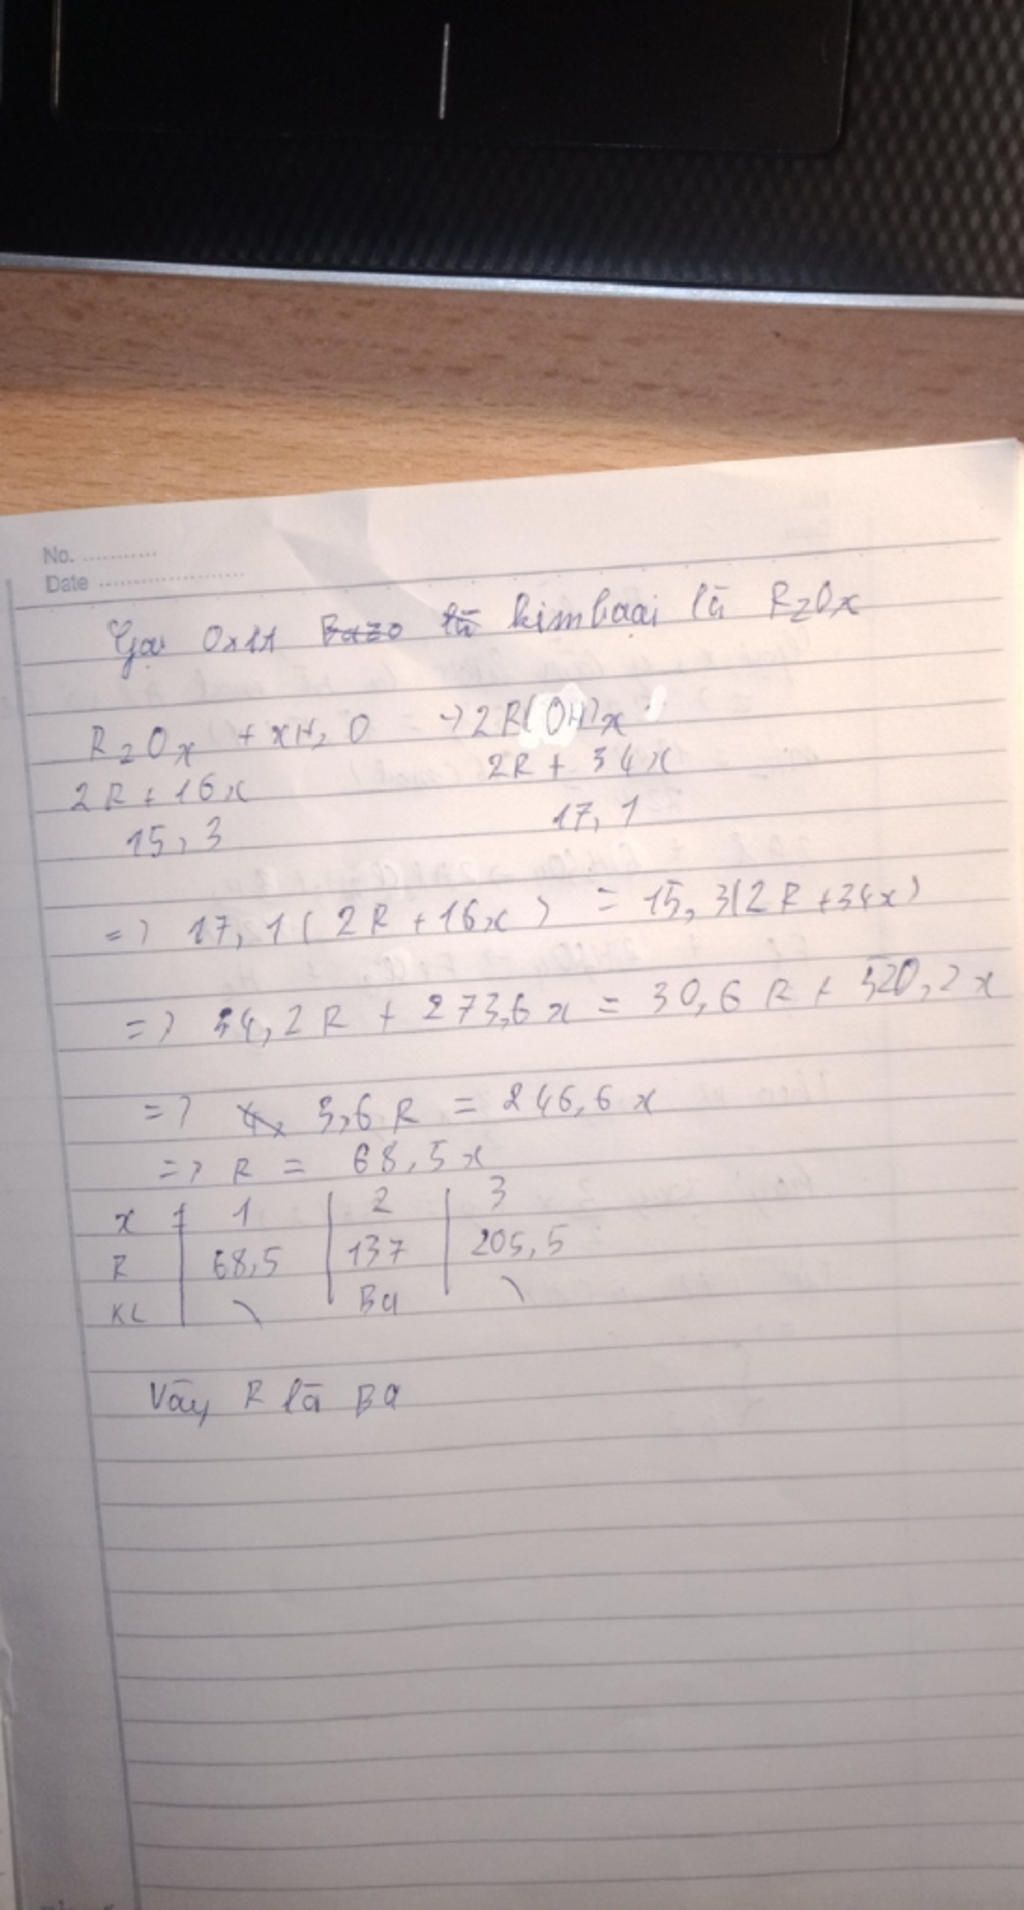 No. ............
Date .......................
Gọi Oxit Bazo là kim loại là R2Ox
R2Ox + xH2O → 2R(OH)x
2R + 16x 2R + 34x
15,3 17,1
=> 17,1(2R + 16x) = 15,3(2R + 34x)
=> 34,2R + 273,6x = 30,6R + 520,2x
=> 3,6R = 246,6x
=> R = 68,5x
x 1 | 2 | 3
R | 68,5 | 137 | 205,5
KL | \ | Ba | \
Vãy R lã Ba